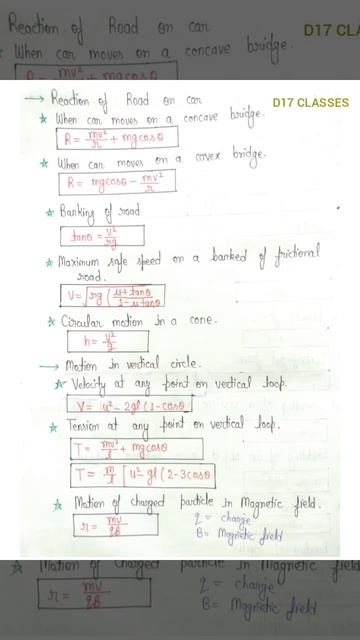 Reaction of Road on car
D17 CLA
When car moves on a concave bridge.
R = mv²/r + mgcosθ
→ Reaction of Road on car
D17 CLASSES
☆ When car moves on a concave bridge.
R = mv²/r + mgcosθ
☆ When car moves on a covex bridge.
R = mgcosθ - mv²/r
☆ Banking of road
tanθ = v²/rg
☆ Maximum safe speed on a banked of frictional
road.
V = √rg (u+tanθ/1-utanθ)
☆ Circular motion in a cone.
h = v²/g
→ Motion in vertical circle.
☆ Velocity at any point on vertical loop.
V = u²- 2gl (1-cosθ
☆ Tension at any point on vertical loop.
T = mv²/l + mgcosθ
T = m/l [u²- gl (2-3cosθ
☆ Motion of charged particle in Magnetic field.
r = mv/qB
q = charge
B = Magnetic field
☆ Motion of charged particle in Magnetic field
r = mv/qB
q = charge
B = Magnetic field